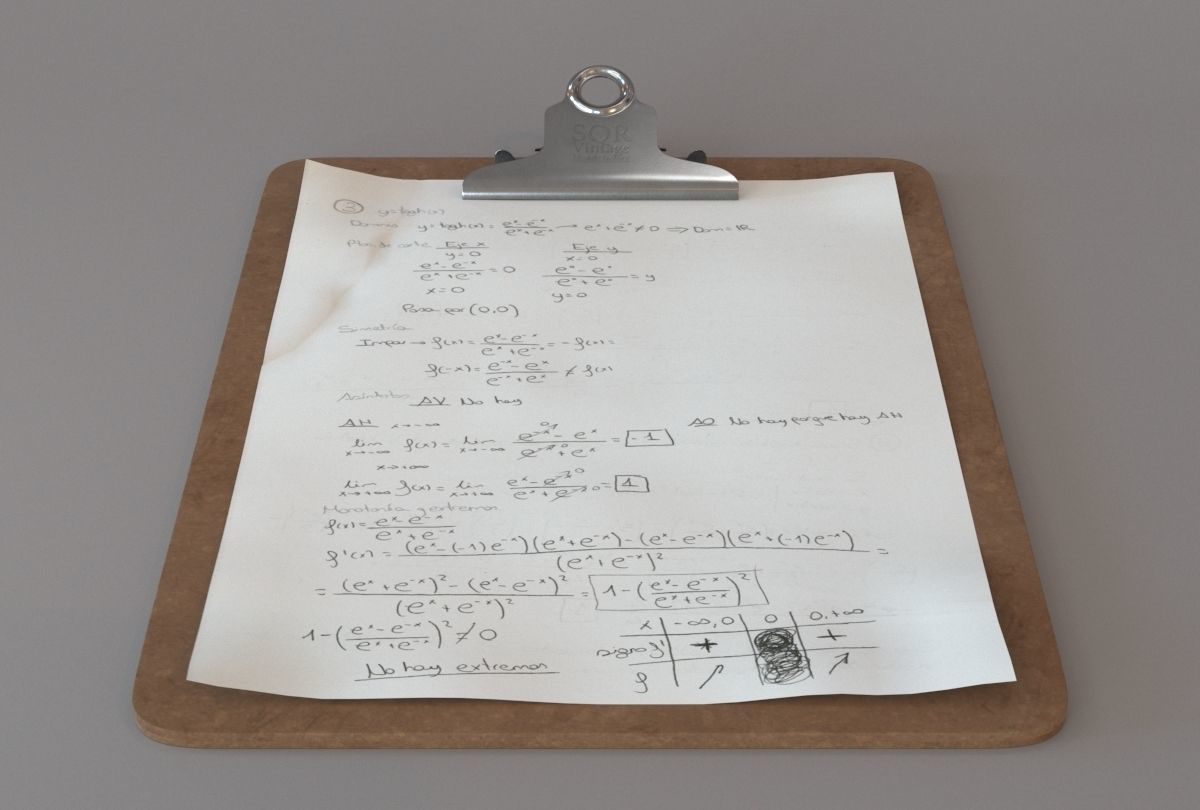 SQR
Vintage
③ y=tgh(x)
Dominio y=tgh(x)= (e^x-e^-x)/(e^x+e^-x) → e^x+e^-x ≠ 0 ⇒ Dom=ℝ
Ptos de corte Eje x Eje y
y=0 x=0
(e^x-e^-x)/(e^x+e^-x) = 0 (e^x-e^x)/(e^x+e^x) = y
x=0 y=0
Pasa por (0,0)
Simetría
Impar → f(x)= (e^x-e^-x)/(e^x+e^-x) = -f(x)=
f(-x)= (e^-x-e^x)/(e^-x+e^x) ≠ f(x)
Asíntotas AV No hay
AH x→-∞ AO No hay porque hay AH
lim x→-∞ f(x)= lim x→-∞ (e^x - e^x)/(e^-x + e^x) = -1
x→+∞
lim x→+∞ f(x)= lim x→+∞ (e^x-e^-x)/(e^x+e^-x) = 1
Monotonía y extremos
f(x)= (e^x-e^-x)/(e^x+e^-x)
f'(x)= ((e^x-(-1)e^-x)(e^x+e^-x)-(e^x-e^-x)(e^x+(-1)e^-x))/(e^x+e^-x)² =
= ((e^x+e^-x)²-(e^x-e^-x)²)/(e^x+e^-x)² = 1-((e^x-e^-x)/(e^x+e^-x))²
1-((e^x-e^-x)/(e^x+e^-x))² ≠ 0
No hay extremos
x -∞,0 0 0,+∞
signo f' + +
f ↗ ↗